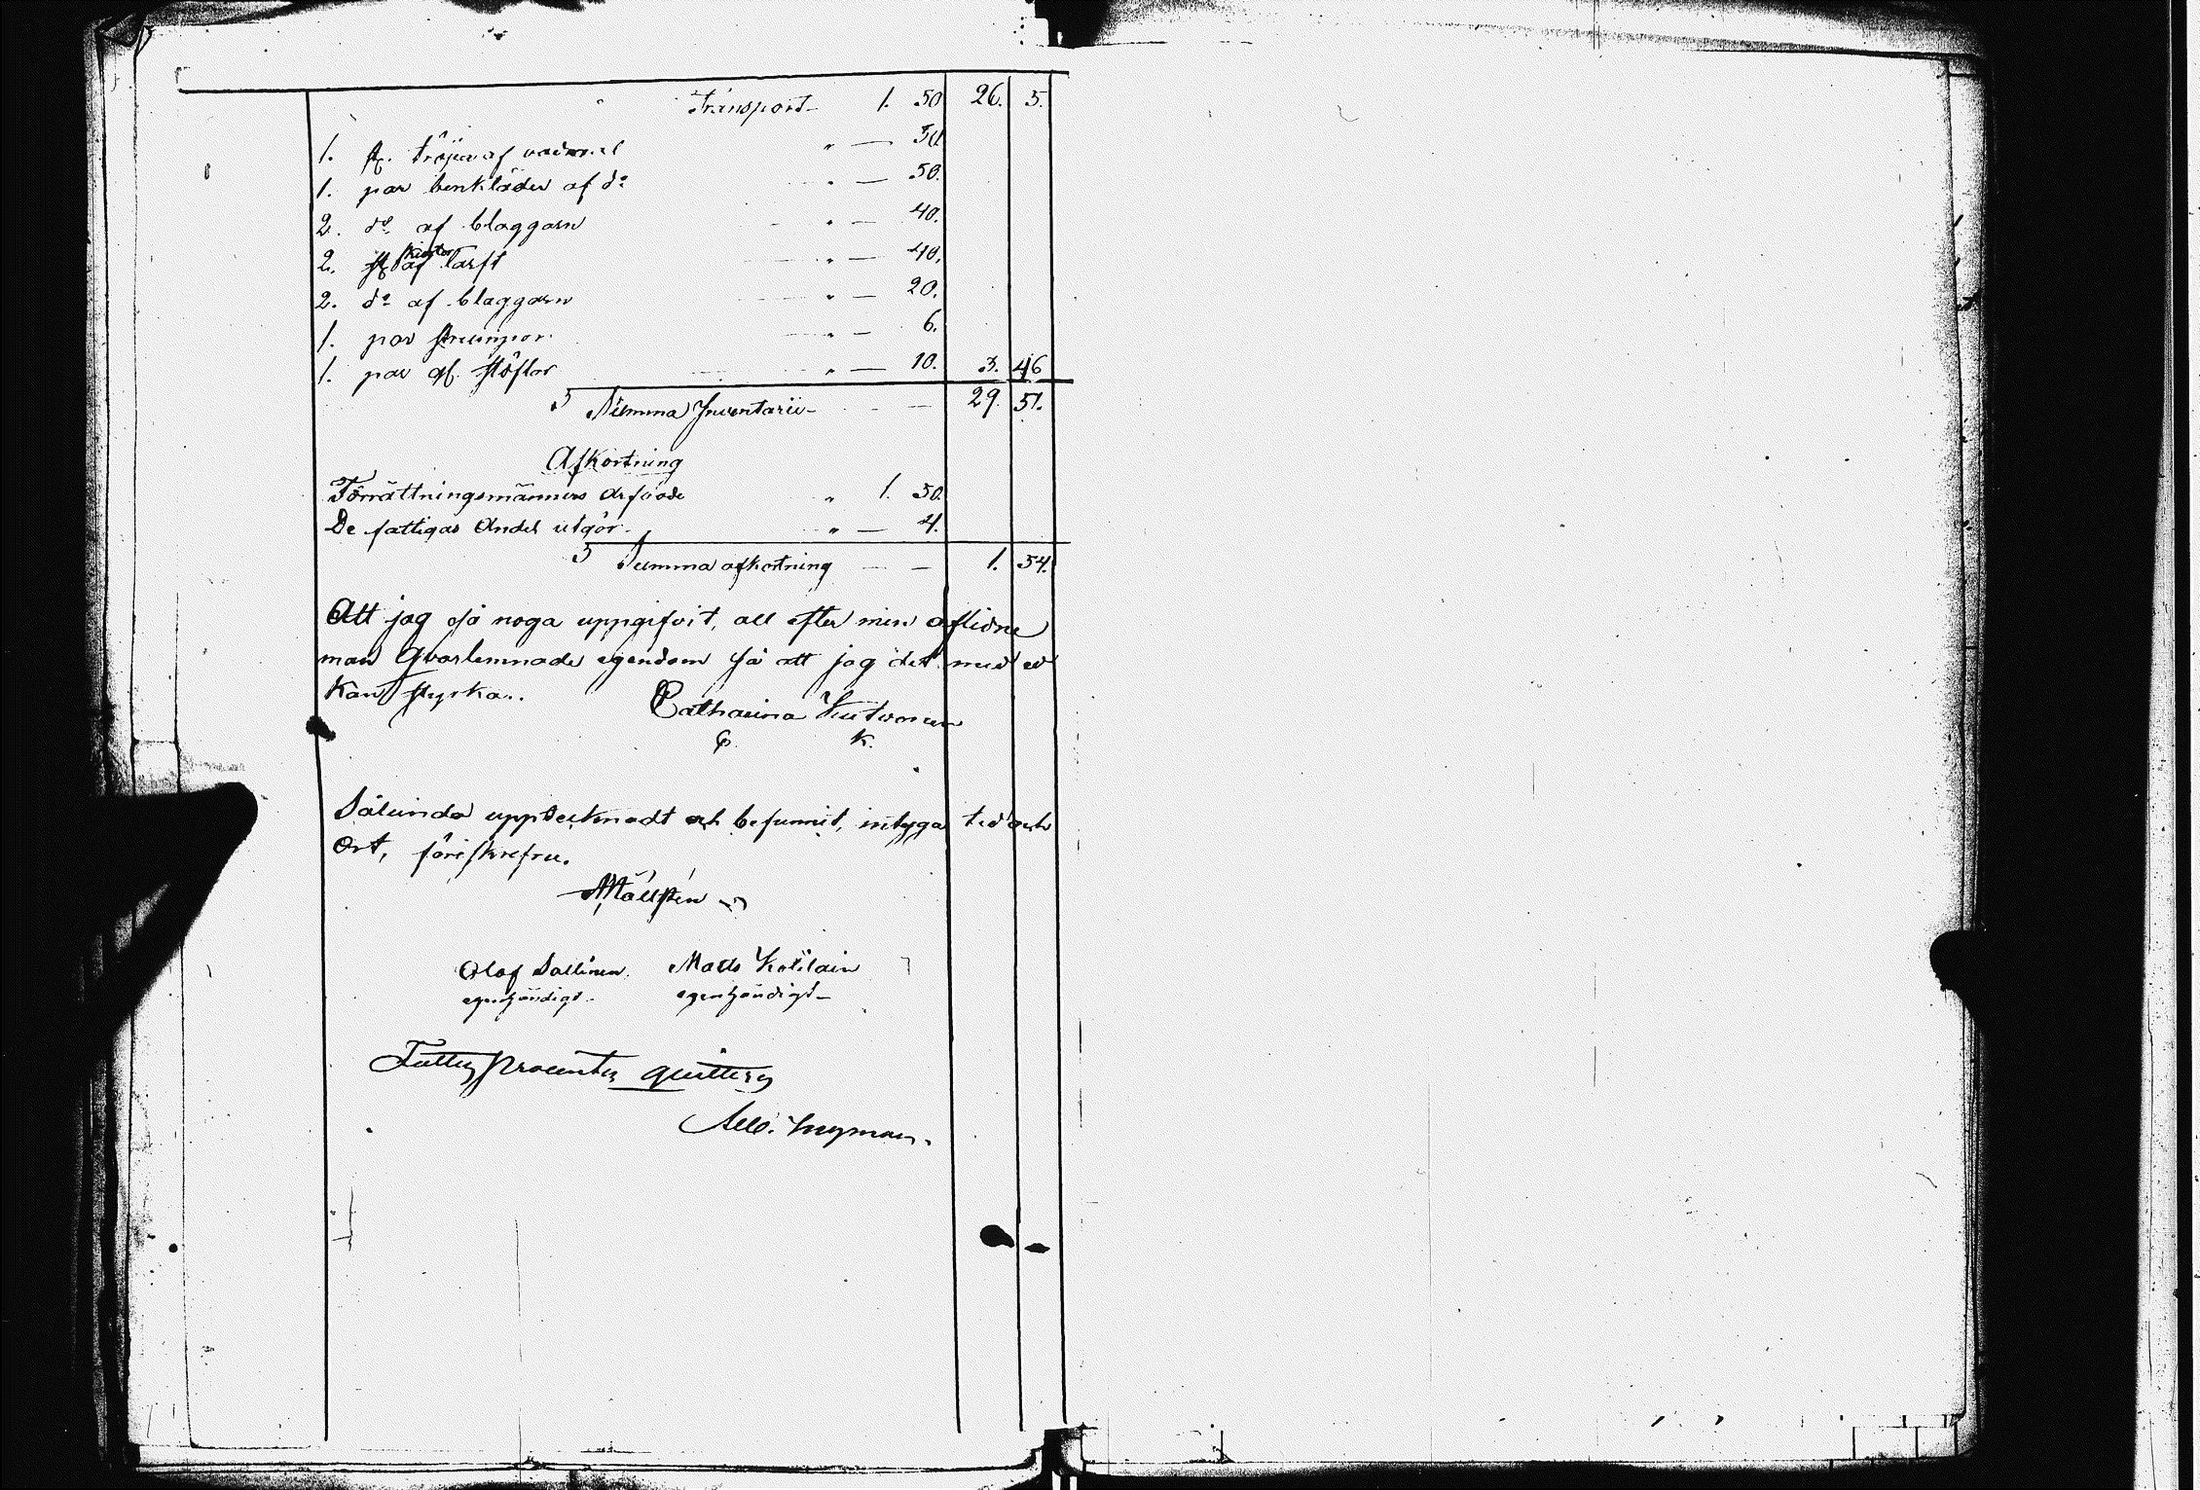 Transport 1. 50 26. 5.
1. st. tröja af vadmal " — 30
1. par benkläder af do " — 50.
2. do af blaggarn " — 40.
2. st skjortor af larft " — 40.
2. do af blaggarn " — 20.
1. par strumpor " — 6.
1. par gl. stöflor " — 10. 3. 46
Summa Inventarii — 29. 51.
Afkortning
Förrättningsmännens arfvode " 1. 50.
De fattigas Andel utgör " — 4.
Summa afkortning — — 1. 54.
Att jag så noga uppgifvit, all efter min aflidne
man qvarlemnade egendom så att jag det med ed
kan styrka.
Catharina
C. K.
Sålunda upptecknadt och befunnit, intyga tid och
Ort, föreskrefne.
Olof Sallinen. Matts Kolilain
egenhändigt. egenhändigt
Fattigprocenten quitteras
Nyman.